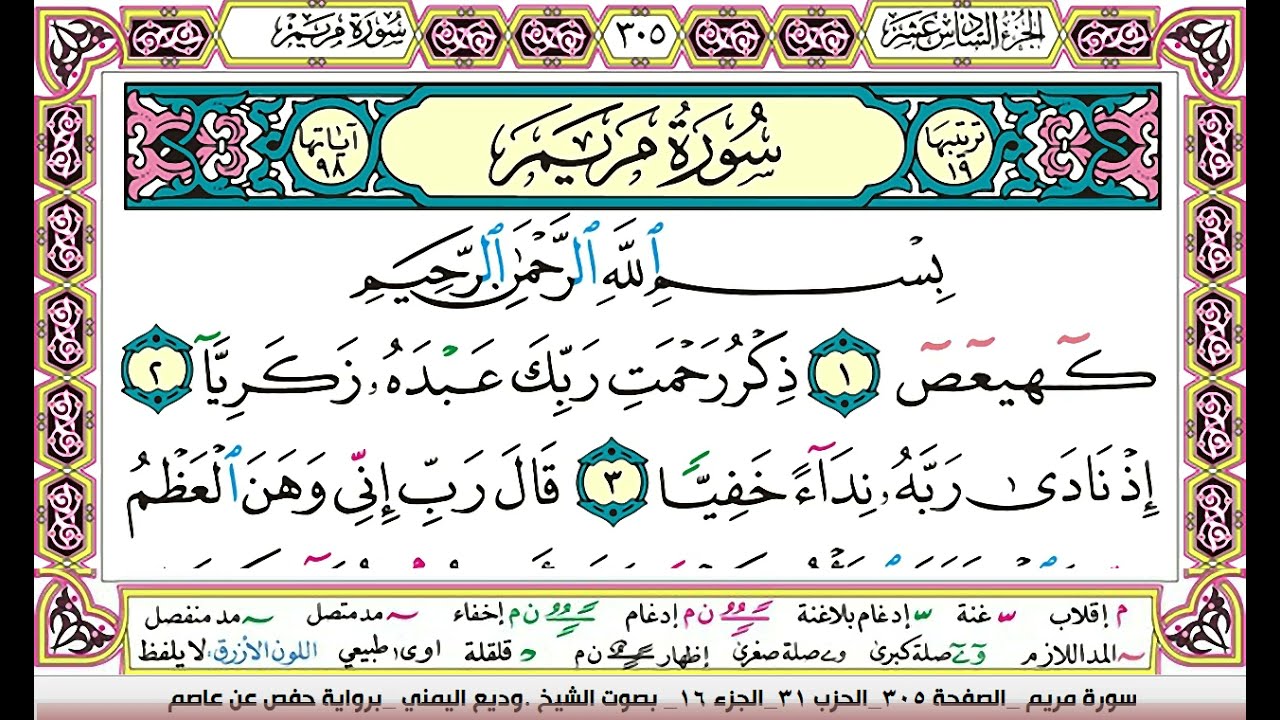 الجزء السادس عشر
٣٠٥
سورة مريم
ترتيبها ١٩
سُورَةُ مَرْيَمَ
آياتها ٩٨
بِسْمِ ٱللَّهِ ٱلرَّحْمَٰنِ ٱلرَّحِيمِ
كٓهيعٓصٓ ١ ذِكْرُ رَحْمَتِ رَبِّكَ عَبْدَهُۥ زَكَرِيَّآ ٢
إِذْ نَادَىٰ رَبَّهُۥ نِدَآءً خَفِيًّا ٣ قَالَ رَبِّ إِنِّي وَهَنَ ٱلْعَظْمُ
م إقلاب غنة إدغام بلاغنة ن م إدغام ن م إخفاء مد متصل مد منفصل
المد اللازم صلة كبرى صلة صغرى إظهار ن م قلقلة اوى طبيعي اللون الأزرق لا يلفظ
سورة مريم _الصفحة ٣٠٥_الحزب ٣١_الجزء ١٦_ بصوت الشيخ .وديع اليمني _برواية حفص عن عاصم